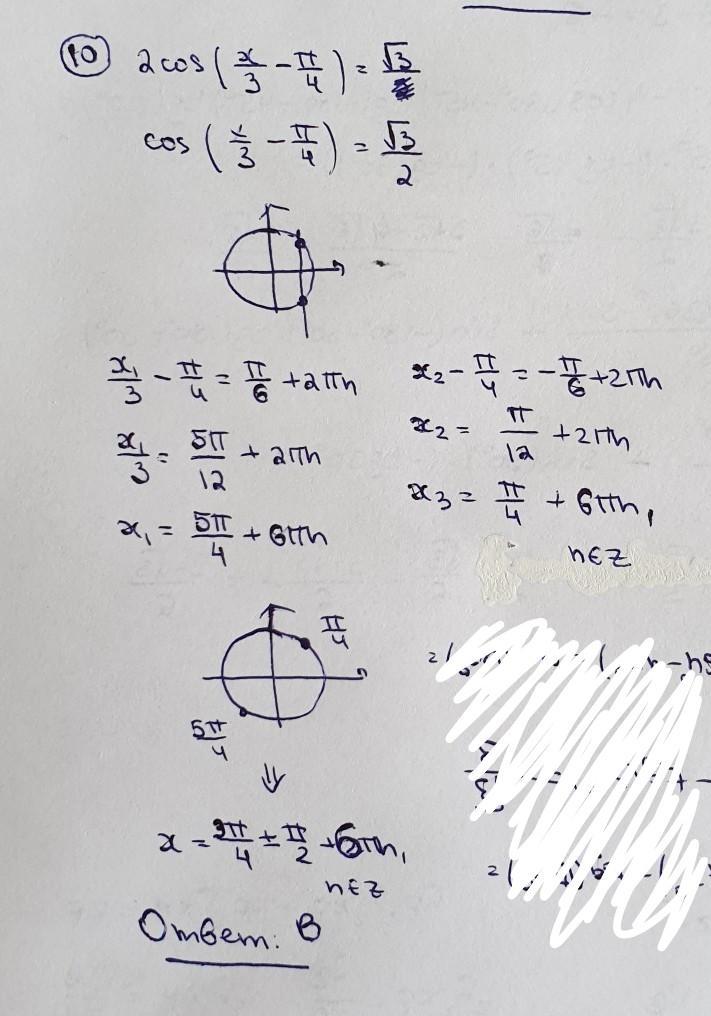 10 2cos(x/3 - π/4) = √3
cos(x/3 - π/4) = √3/2
x₁/3 - π/4 = π/6 + 2πn
x₁/3 = 5π/12 + 2πn
x₁ = 5π/4 + 6πn
x₂ - π/4 = -π/6 + 2πn
x₂ = π/12 + 2πn
x₃ = π/4 + 6πn,
n∈Z
π/4
5π/4
⇓
x = 3π/4 ± π/2 + 6πn,
n∈Z
Ответ: В